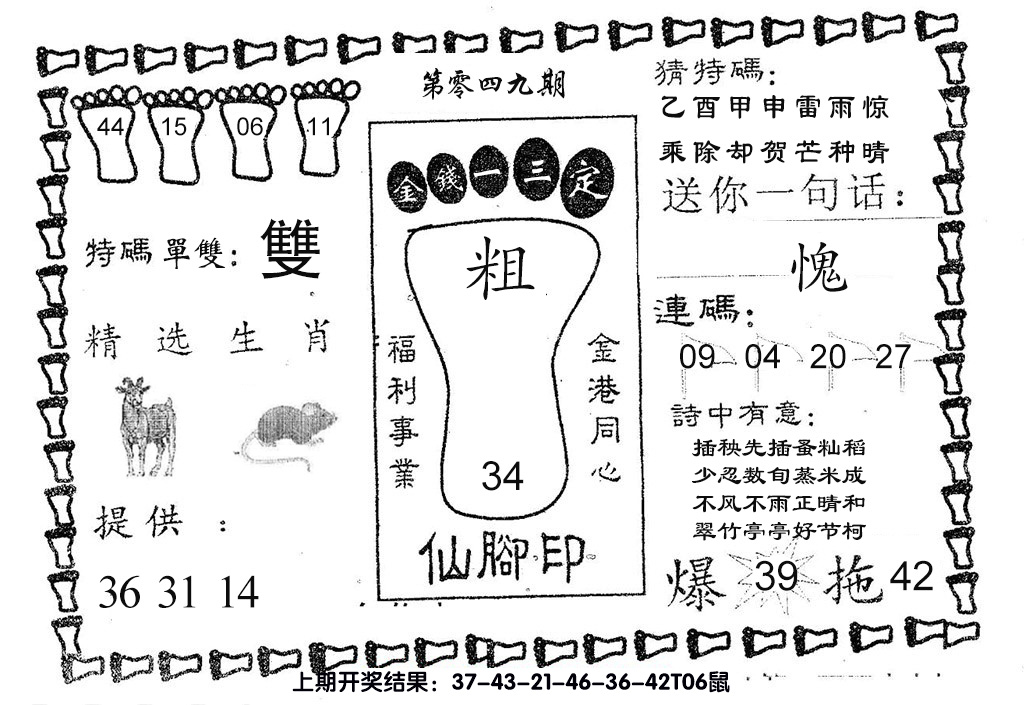 第零四九期
44 15 06 11
特碼單雙：雙
精选生肖
提供：
36 31 14
金錢一三定
粗
福利事業
金港同心
34
仙腳印
猜特碼：
乙酉甲申雷雨惊
乘除却贺芒种晴
送你一句话：
愧
連碼：
09 04 20 27
詩中有意：
插秧先插蚤籼稻
少忍数旬蒸米成
不风不雨正晴和
翠竹亭亭好节柯
爆 39 拖 42
上期开奖结果：37-43-21-46-36-42T06鼠